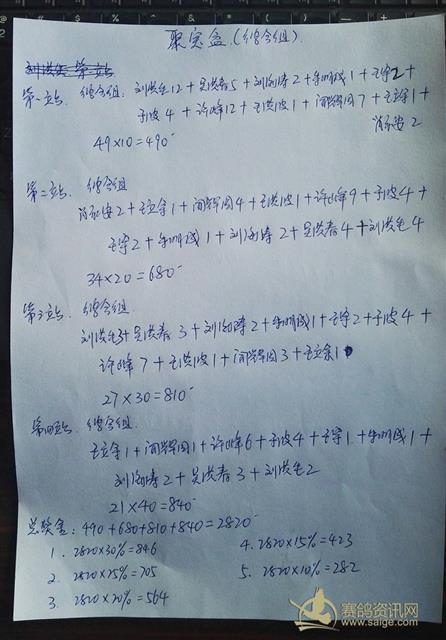 聚宝盆.(综合组).
第一站. 综合组: 刘洪生12+吴洪春5+刘海涛2+朱明成1+王宇2+
于波4+许峰12+王洪波1+闫辉国7+王立余1+
肖永安2
49×10=490
第二站. 综合组
肖永安2+王立余1+闫辉国4+王洪波1+许峰9+于波4+
王宇2+朱明成1+刘海涛2+吴洪春4+刘洪生4
34×20=680
第三站. 综合组
刘洪生3+吴洪春3+刘海涛2+朱明成1+王宇2+于波4+
许峰7+王洪波1+闫辉国3+王立余1
27×30=810
第四站. 综合组
王立余1+闫辉国1+许峰6+于波4+王宇1+朱明成1+
刘海涛2+吴洪春3+刘洪生2
21×40=840
总奖金: 490+680+810+840=2820
1. 2820×30%=846
2. 2820×25%=705
3. 2820×20%=564
4. 2820×15%=423
5. 2820×10%=282
赛鸽资讯网
www.saige.com